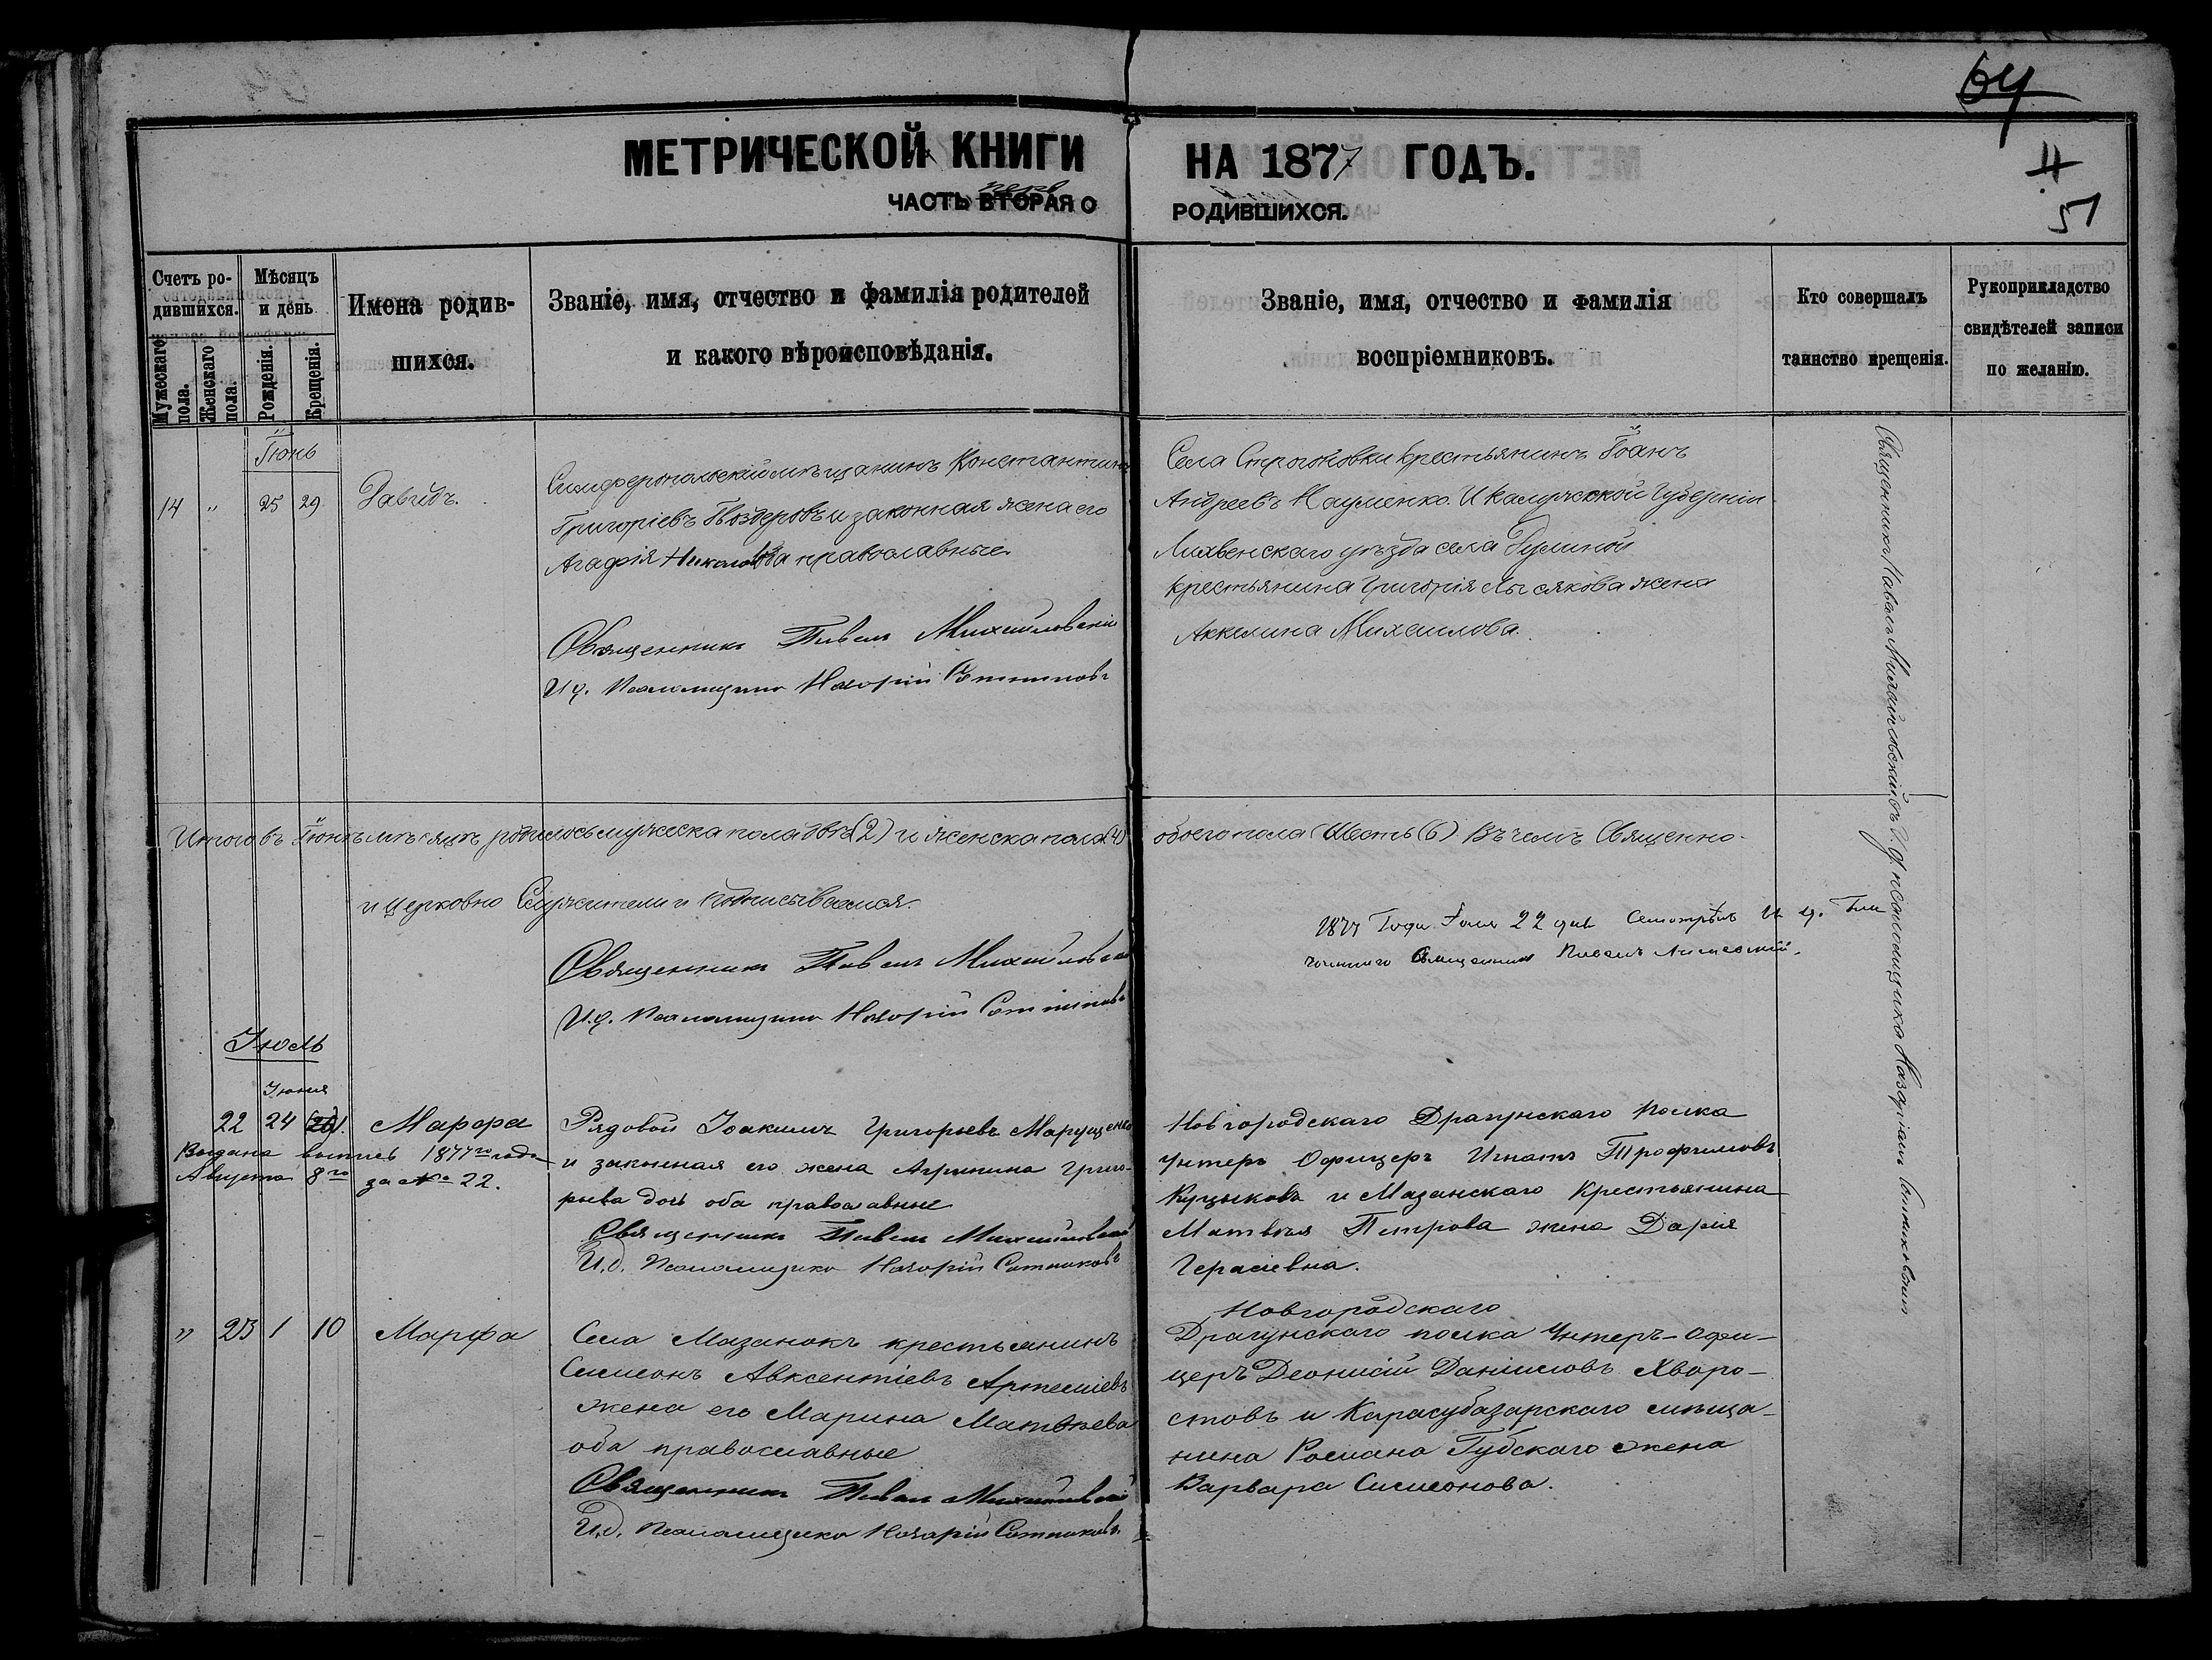 64
4
51
МЕТРИЧЕСКОЙ КНИГИ НА 1877 ГОДЪ.
ЧАСТЬ ВТОРАЯ О РОДИВШИХСЯ.
перв
Счетъ ро-
дившихся.
Мужескаго пола.
Женскаго пола.
Мѣсяцъ
и день
Рожденія.
Крещенія.
Имена родив-
шихся.
Званіе, имя, отчество и фамилія родителей
и какого вѣроисповѣданія.
Званіе, имя, отчество и фамилія
воспріемниковъ.
Кто совершалъ
таинство крещенія.
Рукоприкладство
свидѣтелей записи
по желанію.
Іюнь
14 " 25 29 Давидъ.
Симферопольскій мѣщанинъ Константинъ
Григоріевъ и законная жена его
Агафія православные.
Священникъ Павелъ Михайловскій
И д. Псаломщика Назарій Сотниковъ
Села Строгоновки крестьянинъ Іоанъ
Андреевъ Науменко. И Калужской Губерніи
Лихвенскаго уѣзда села
крестьянина Григорія Лысякова жена
Аккилина Михаилова.
Священникъ Павелъ Михайловскій съ И. д. псаломщика Назаріемъ Сотниковымъ
Итого въ Іюнѣ мѣсяцѣ родилось мужеска пола два (2) и женска пола (4) обоего пола Шесть (6). Въ чемъ Священно-
и церковно Служители и подписываемся.
Священникъ Павелъ Михайловскій
И. д. Псаломщика Назарій Сотниковъ
1877 Года Іюля 22 дня Смотрѣлъ И. д. Бла
гочиннаго Священникъ Павелъ
Іюль
Іюня
22 24 26 Марфа
Выдана выпись 1877го года
Августа 8го за № 22.
Рядовой Іоакимъ Григорьевъ Марущенко
и законная его жена Агрипина Григо-
рьева дочь оба православные
Священникъ Павелъ Михайловскій
И. д. Псаломщика Назарій Сотниковъ
Новгородскаго Драгунскаго Полка
Унтеръ Офицеръ Игнатъ Трофимовъ
Куцыковъ и Мазанскаго Крестьянина
Матвѣя Петрова жена Дарія
Герасіевна.
" 23 1 10 Марфа
Села Мазанокъ крестьянинъ
Симеонъ Авксентіевъ Артеміевъ
жена его Марина Матвѣева
оба православные
Священникъ Павелъ Михайловскій
И. д. Псаломщика Назарій Сотниковъ.
Новгородскаго
Драгунскаго полка Унтеръ-Офи-
церъ Деонисій Даниловъ Хворо-
стовъ и Карасубазарскаго мѣща-
нина Романа Губскаго жена
Варвара Симеонова.